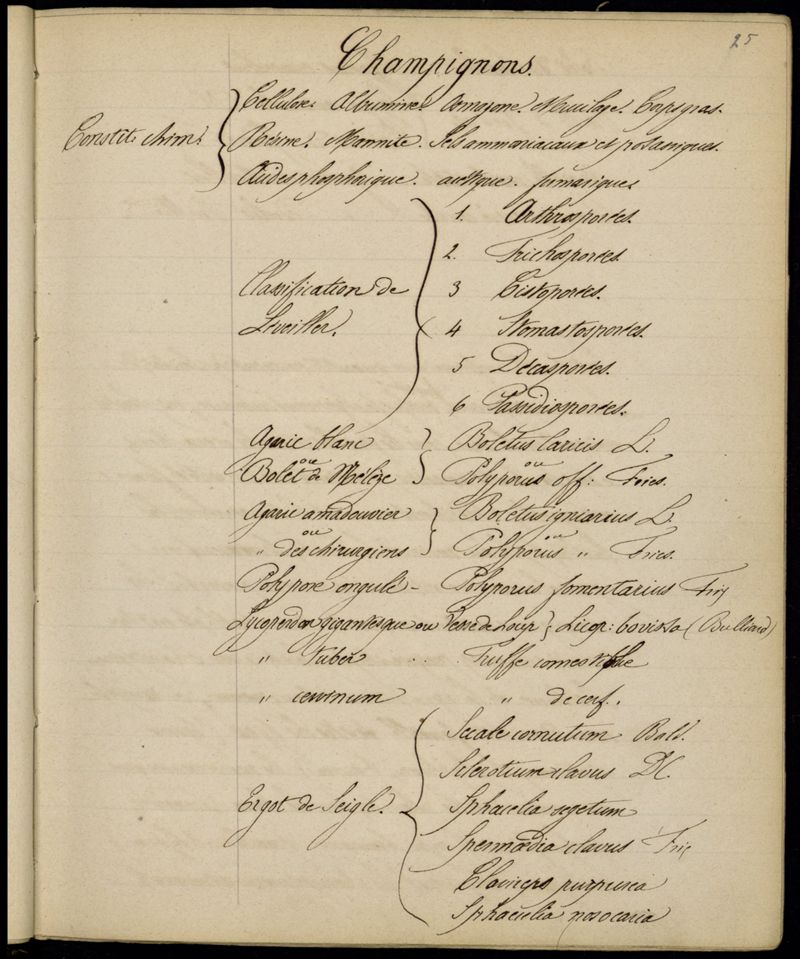 25
Champignons.
Constit. chim.
Cellulose. Albumine. Osmazone. Mucilage. Corps gras.
Résine. Mannite. Sels ammoniacaux et potassiques.
Acides phosphorique. acétique. fumarique.
Classification de
Léveiller.
1. Arthrosporées.
2. Trichosporées.
3 Cistoporées.
4 Stomastosporées.
5 Décasporées.
6 Bassidiosporées.
Agaric blanc } Boletus laricis L.
ou ou
Bolet de Mélèze } Polyporus off: Fries.
Agaric amadouvier } Boletus igniarius L.
ou ou
" des chirurgiens } Polyporus " Fries.
Polypore ongulé - Polyporus fomentarius Fries
Lycoperdon gigantesque ou Vesse de Loup } Licop: bovista (Bulliard)
" Tuber . . Truffe comestible
" cervinum " de cerf.
Ergot de Seigle.
Secale cornutum Bald.
Sclerotium clavus DC.
Sphacelia segetum
Spermœdia clavus Frie
Claviceps purpurea
Sphacelia nosocaria